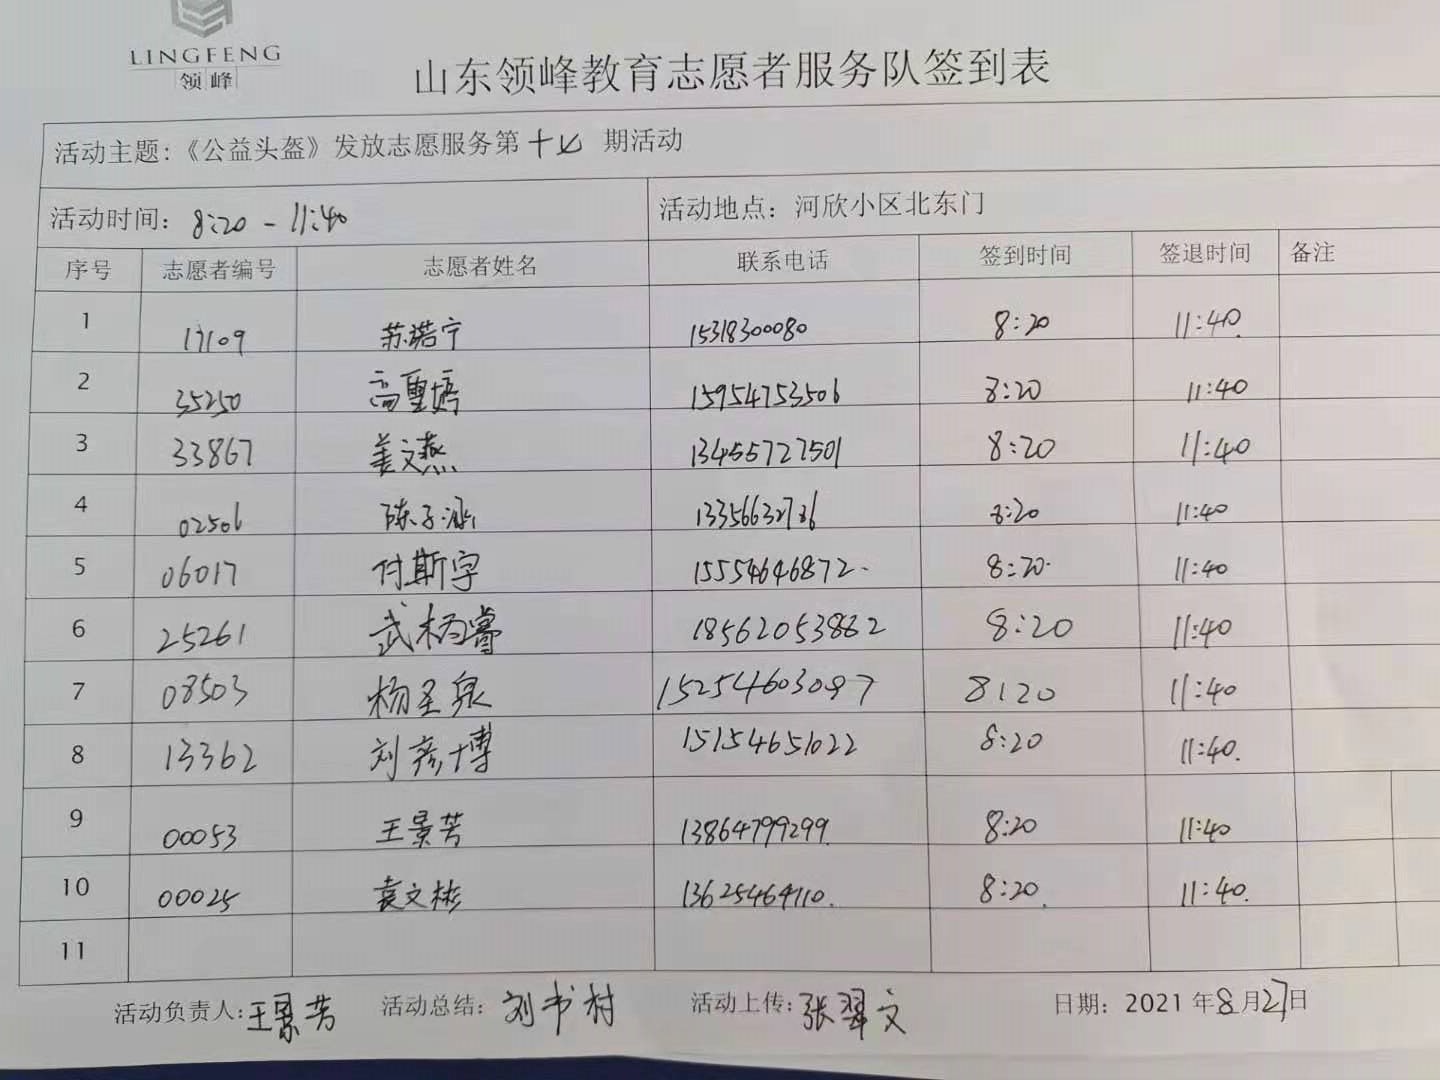 LINGFENG
领峰
山东领峰教育志愿者服务队签到表
活动主题:《公益头盔》发放志愿服务第十七 期活动
活动时间: 8:20 - 11:40 活动地点: 河欣小区北东门
序号 志愿者编号 志愿者姓名 联系电话 签到时间 签退时间 备注
1 17109 苏诺宁 15318300080 8:20 11:40.
2 35250 高重婷 15954753506 8:20 11:40
3 33867 姜文燕 13455727501 8:20 11:40
4 02506 陈子涵 8:20 11:40
5 06017 付斯宇 15554646872. 8:20. 11:40
6 25261 武柄睿 18562053882 8:20 11:40
7 08503 杨圣泉 15254603097 8:20 11:40
8 13362 刘彦博 15154651022 8:20 11:40.
9 00053 王景芳 13864799299. 8:20 11:40
10 00025 袁文彬 8:20. 11:40.
11
活动负责人: 王景芳 活动总结: 刘书村 活动上传: 张翠文 日期: 2021 年8月27日